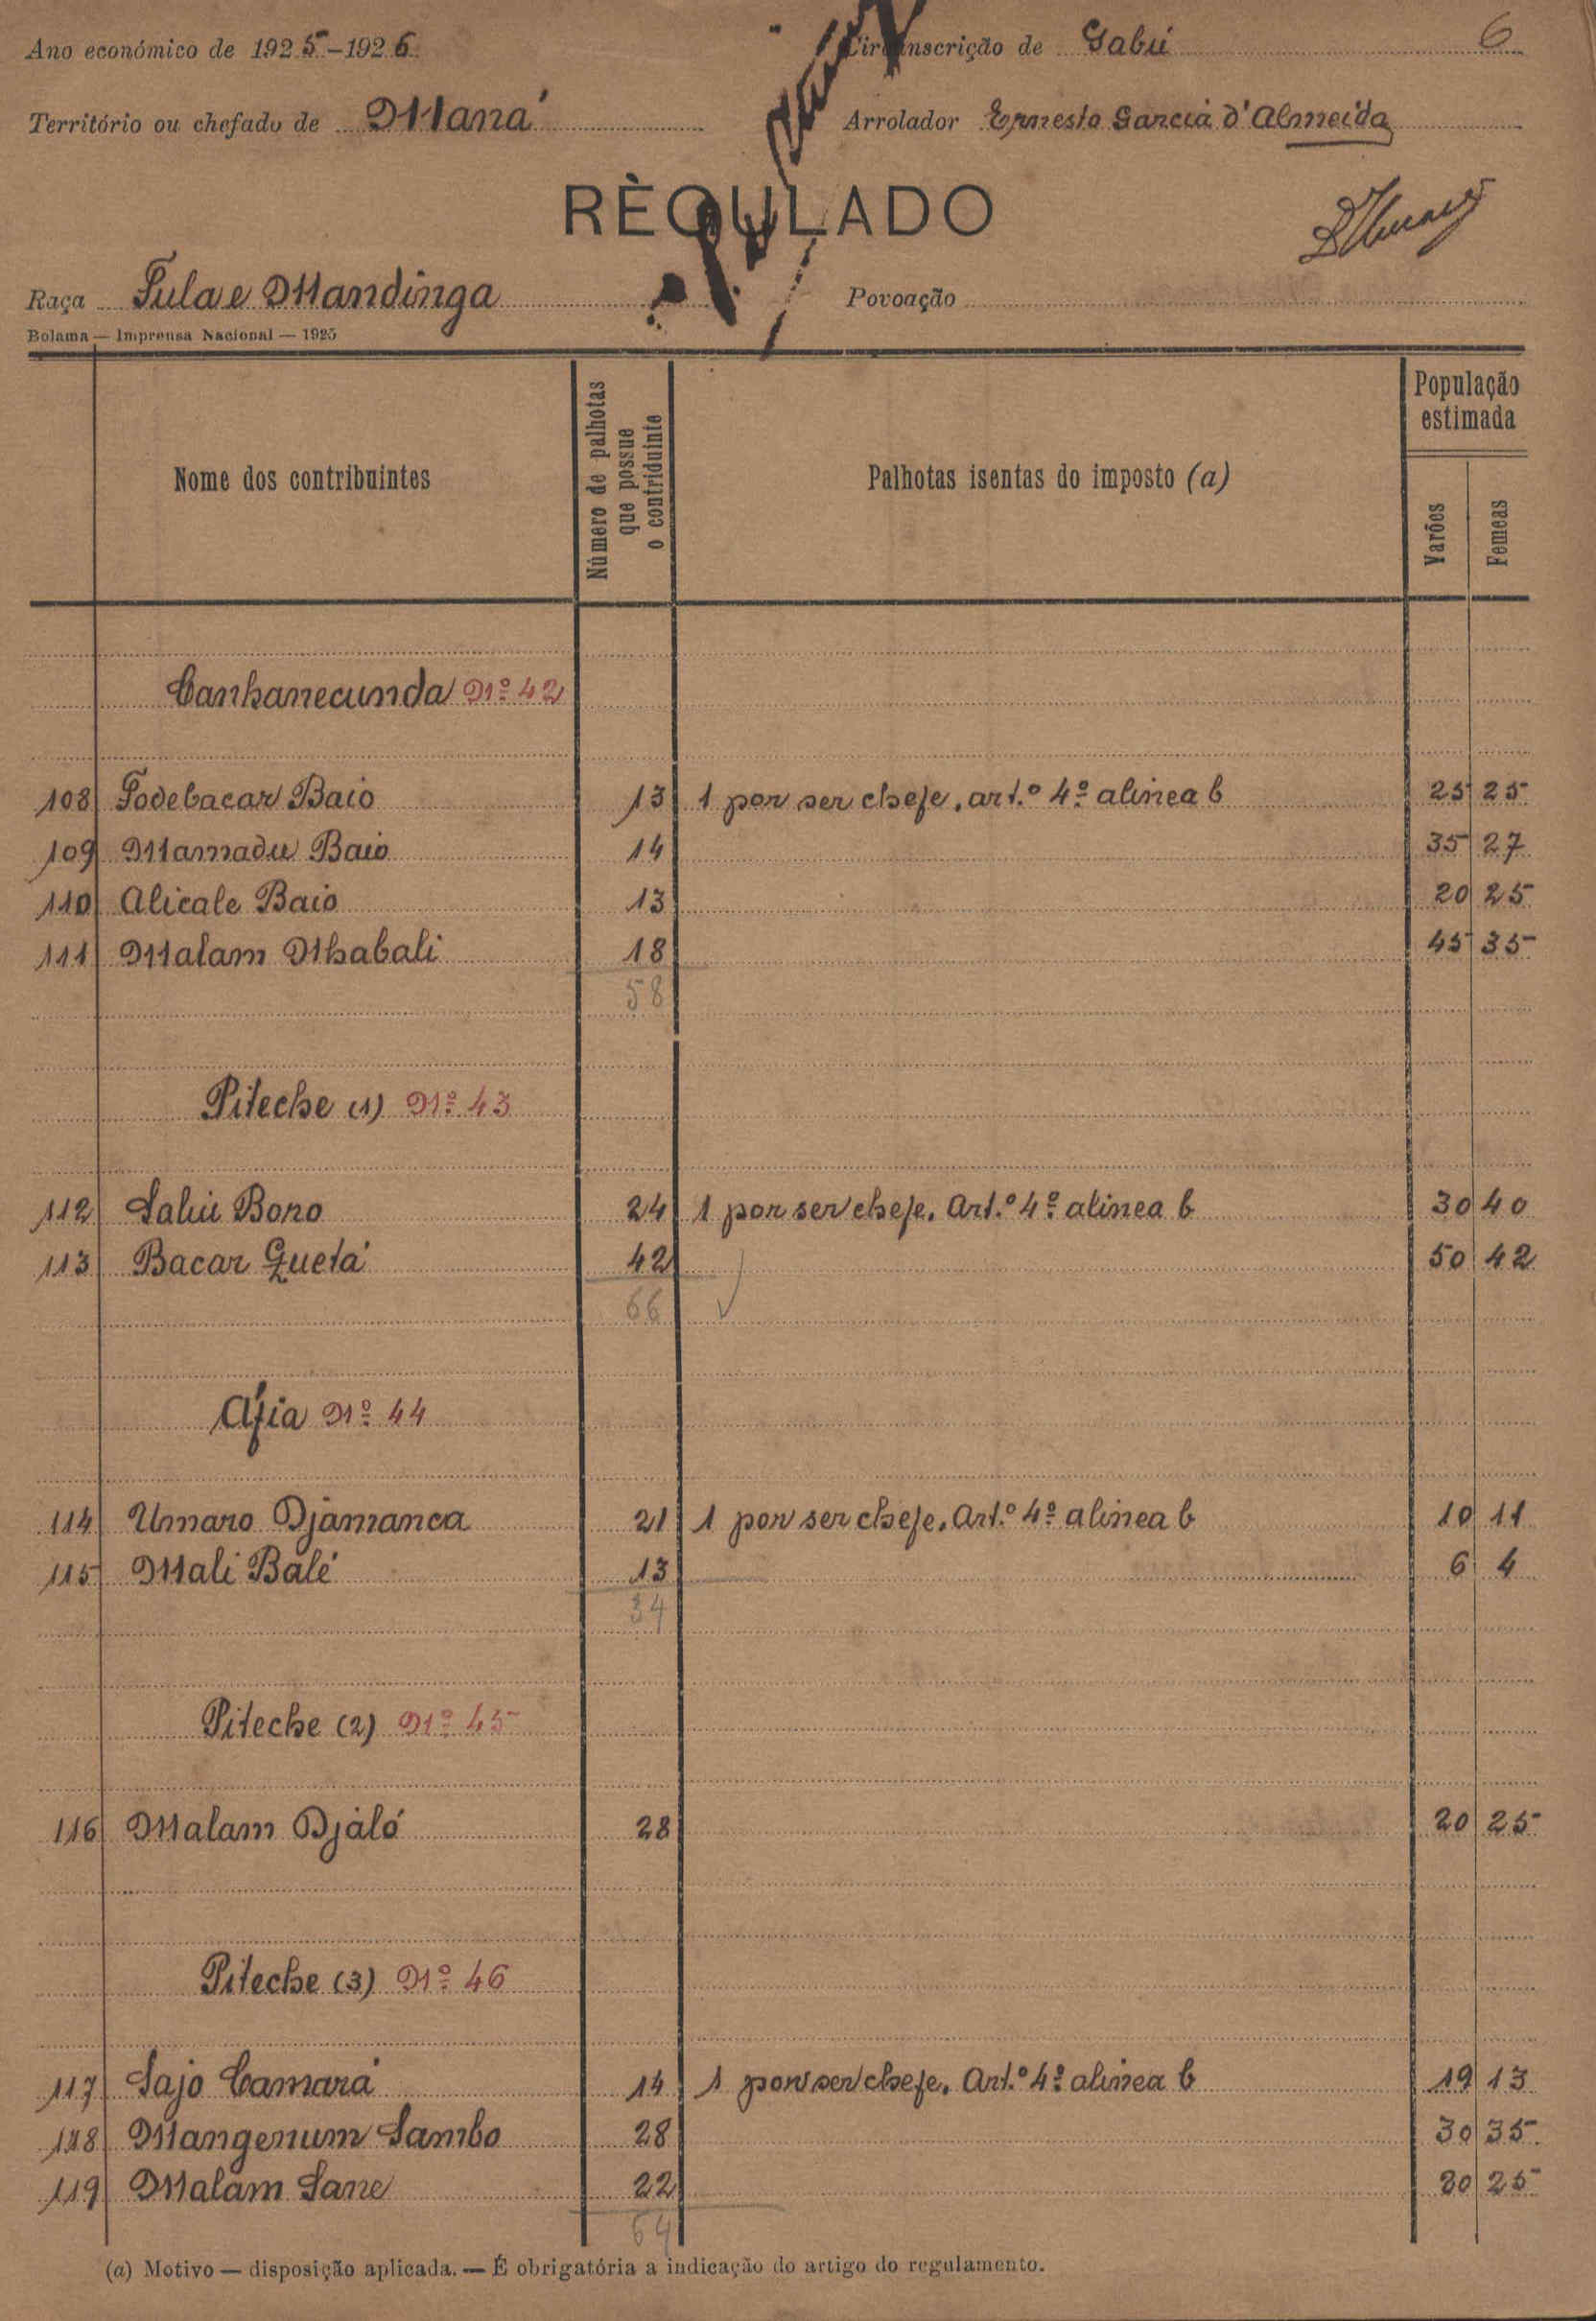 Ano económico de 1925-1926
Circunscrição de Gabú 6
Território ou chefado de Maná
Arrolador Ernesto Garcia d'Almeida
RÈGULADO
Raça Fula e Mandinga
Povoação
Bolama — Imprensa Nacional — 1925
Nome dos contribuintes
Número de palhotas que possue o contriduinte
Palhotas isentas do imposto (a)
População estimada
Varões
Femeas
Canhanecunda Nº 42
108 Fodebacar Baio 13 1 por ser chefe, art.º 4º alinea b 25 25
109 Mamadu Baio 14 35 27
110 Alicale Baio 13 20 25
111 Malam Mhabali 18 45 35
58
Piteche (1) Nº 43
112 Saliu Bono 24 1 por ser chefe. Art.º 4º alinea b 30 40
113 Bacar Quetá 42 50 42
66
Áfia Nº 44
114 Umaro Djamanca 21 1 por ser chefe. Art.º 4º alinea b 10 11
115 Mali Balé 13 6 4
34
Piteche (2) Nº 45
116 Malam Djaló 28 20 25
Piteche (3) Nº 46
117 Sajo Camará 14 1 por ser chefe. Art.º 4º alinea b 19 13
118 Mangenum Sambo 28 30 35
119 Malam Sane 22 20 25
64
(a) Motivo — disposição aplicada. — É obrigatória a indicação do artigo do regulamento.